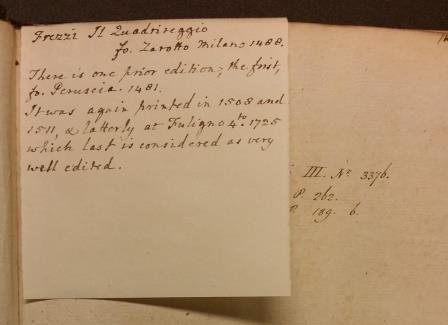 Frezzi Il Quadrireggio
fo. Zarotto Milano 1488.
There is one prior edition; the first,
fo. Peruscia. 1481.
It was again printed in 1508 and
1511, & latterly at Fuligno 4to. 1725
which last is considered as very
well edited.
III. No. 3376.
P. 262.
P. 189. 6.